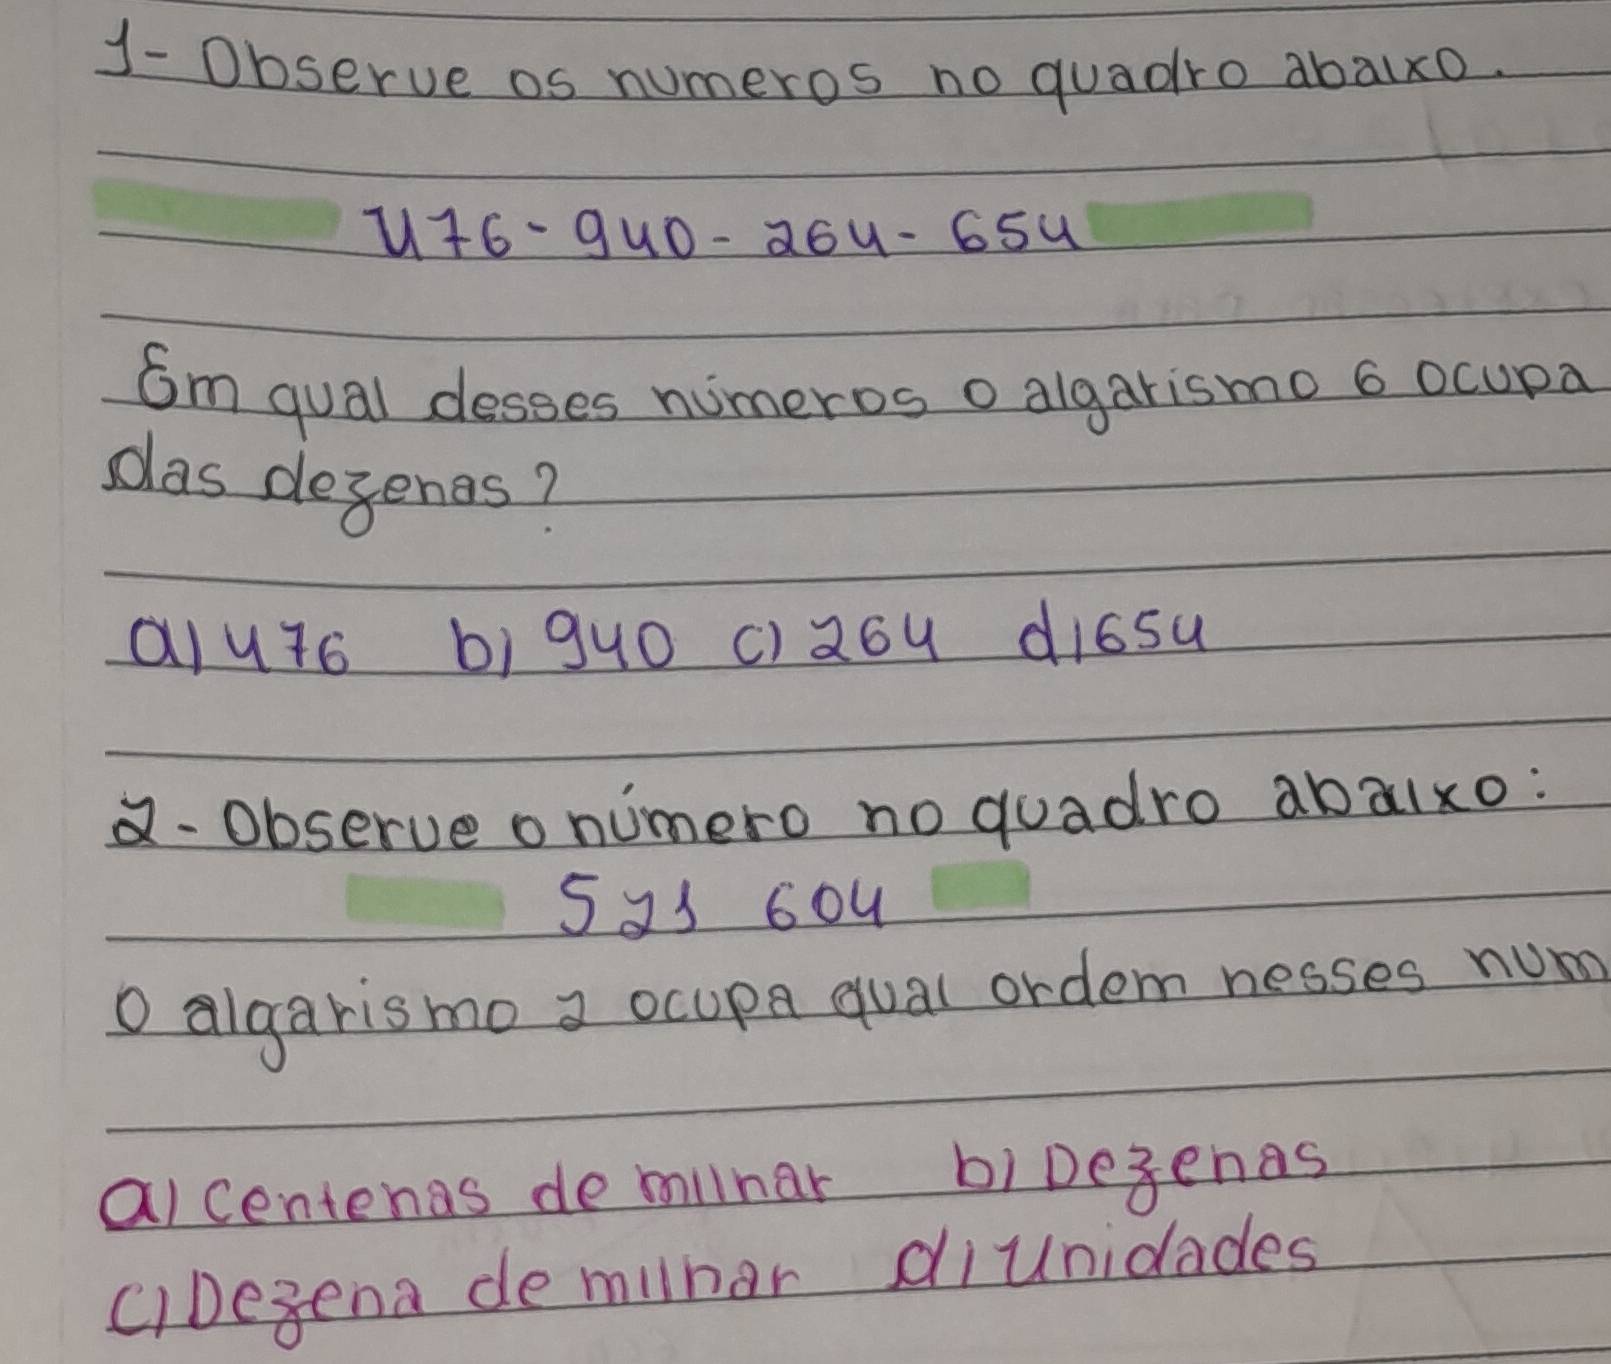 1- Observe os numeros no quadro abaixo.
476 - 940 - 264 - 654
Em qual desses números o algarismo 6 ocupa
das dezenas?
a) 476 b) 940 c) 264 d) 654
2 - Observe o número no quadro abaixo:
521 604
O algarismo 2 ocupa qual ordem nesses num
a) centenas de milhar b) Dezenas
c) Dezena de milhar d) Unidades